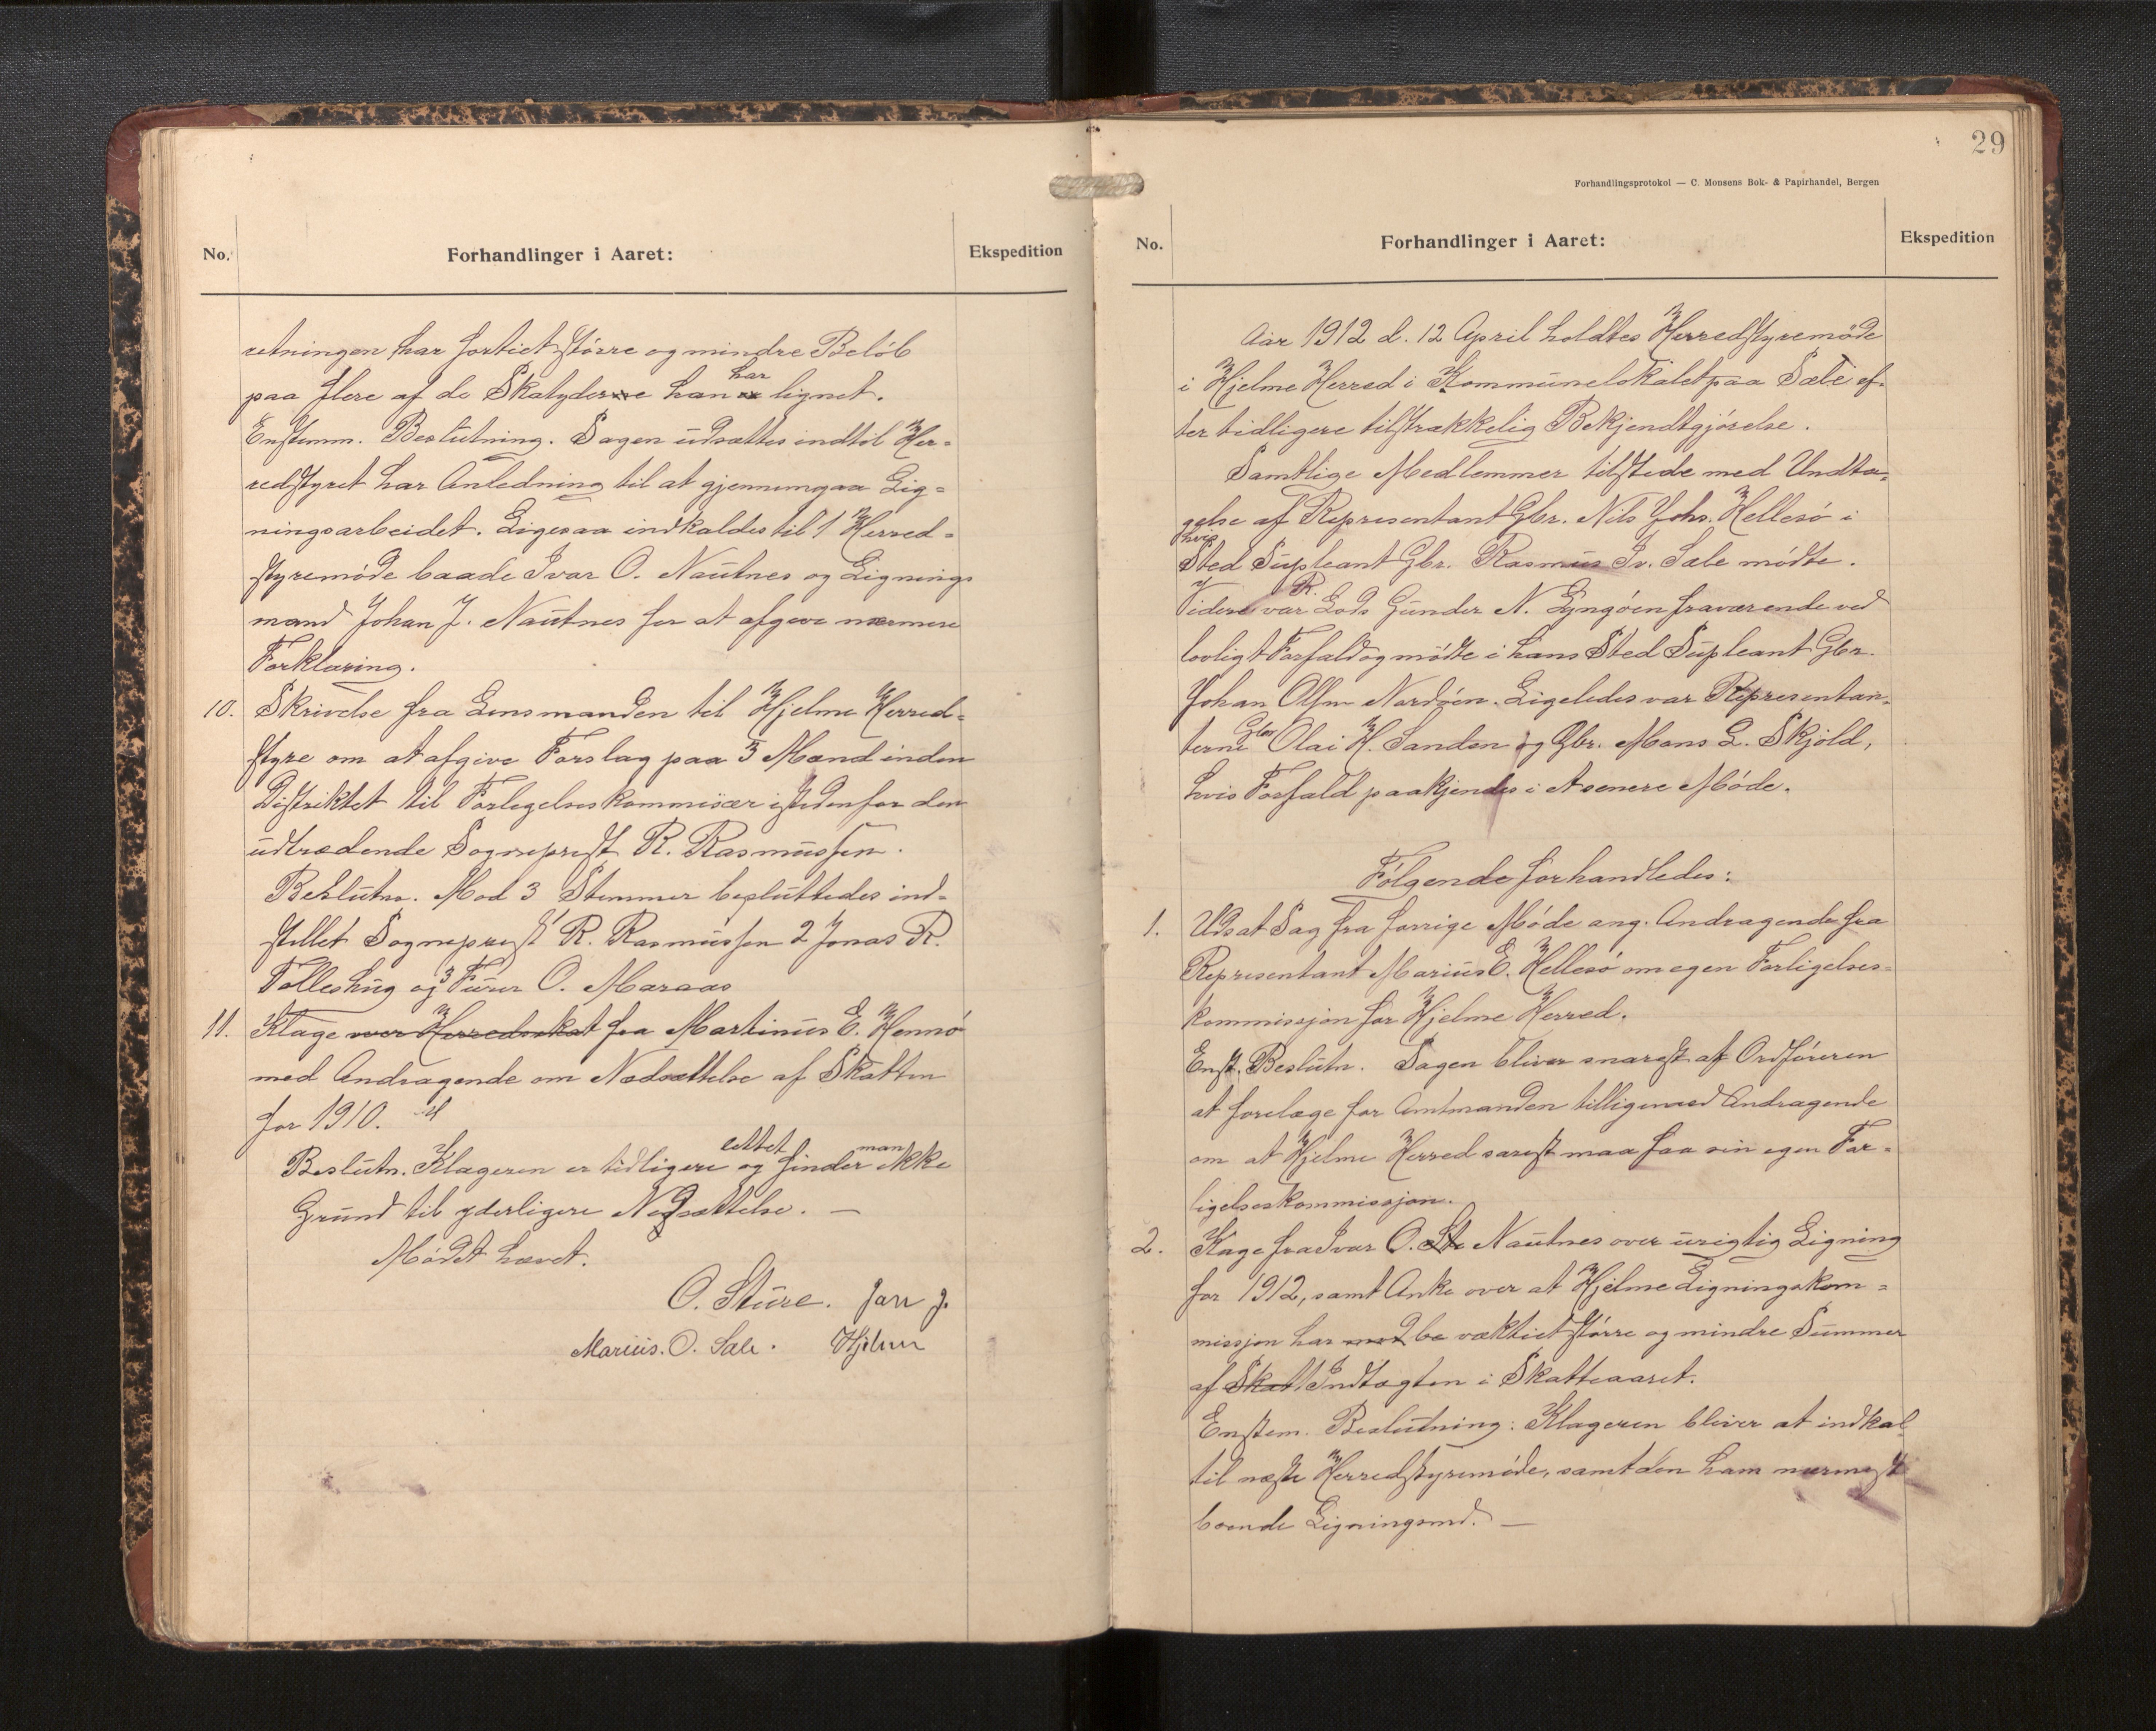 No.
Forhandlinger i Aaret:
Ekspedition
retningen har fortiet større og mindre Beløb
har
paa flere af de Skatyderne han lignet.
Enstemm. Beslutning. Sagen udsættes indtil Her-
redstyret har Anledning til at gjennemgaa Lig-
ningsarbeidet. Ligesaa indkaldes til 1 Herred-
styremøde baade Ivar O. Nautnes og Lignings
mand Johan J. Nautnes for at afgive nærmere
Forklaring.
10. Skrivelse fra Lensmanden til Hjelme Herred-
styre om at afgive Forslag paa 3 Mænd inden
Distriktet til Forlegelseskommisær istedenfor den
udtrædende Sogneprest R. Rasmussen.
Beslutn. Mod 3 Stemmer besluttedes ind-
stillet Sogneprest R. Rasmussen 2 Jonas R.
Tolleshug og 3 Furer O. Maraas
11. Klage over Herredsskat fra Martinus E. Hennø
med Andragende om Nedsættelse af Skatten
for 1910.
lettet man
Beslutn. Klageren er tidligere og finder ikke
Grund til yderligere Nedsættelse. —
Mødet hævet.
O. Sture. Jan J.
Marius. O. Sæle. Hjelme
29
Forhandlingsprotokol — C. Monsens Bok- & Papirhandel, Bergen
No.
Forhandlinger i Aaret:
Ekspedition
Aar 1912 d. 12 April holdtes Herredstyremøde
i Hjelme Herred i Kommunelokalet paa Sæle ef-
ter tidligere tilstrækkelig Bekjendtgjørelse.
Samtlige Medlemmer tilstede med Undta-
gelse af Representant Gbr. Nils Johs. Hellesø i
hvis
Sted Supleant Gbr. Rasmus Iv. Sæle mødte.
R.
Videre var Lods Gunder N. Lyngøen fraværende ved
lovligt Forfald og mødte i hans Sted Supleant Gbr.
Johan Olsn Nordøen. Ligeledes var Representan-
Gbr
terne Olai H. Sanden og Gbr. Mons L. Skjold,
hvis Forfald paakjendes i et senere Møde.
Følgende forhandledes:
1. Udsat Sag fra forrige Møde ang. Andragende fra
Representant Marius E. Hellesø om egen Forligelses-
kommissjon for Hjelme Herred.
Enst. Beslutn. Sagen bliver snarest af Ordføreren
at forelæge for Amtmanden tilligemed Andragende
om at Hjelme Herred sarest maa faa sin egen For-
ligelseskommissjon.
2. Kage fra Ivar O. Nautnes over urigtig Ligning
for 1912, samt Anke over at Hjelme Ligningskom-
missjon har med be væktiet større og mindre Summer
af Skatt Indtægten i Skatteaaret.
Enstem. Beslutning: Klageren bliver at indkal
til næste Herredstyremøde, samt den ham nærmest
boende Ligningsmd. —